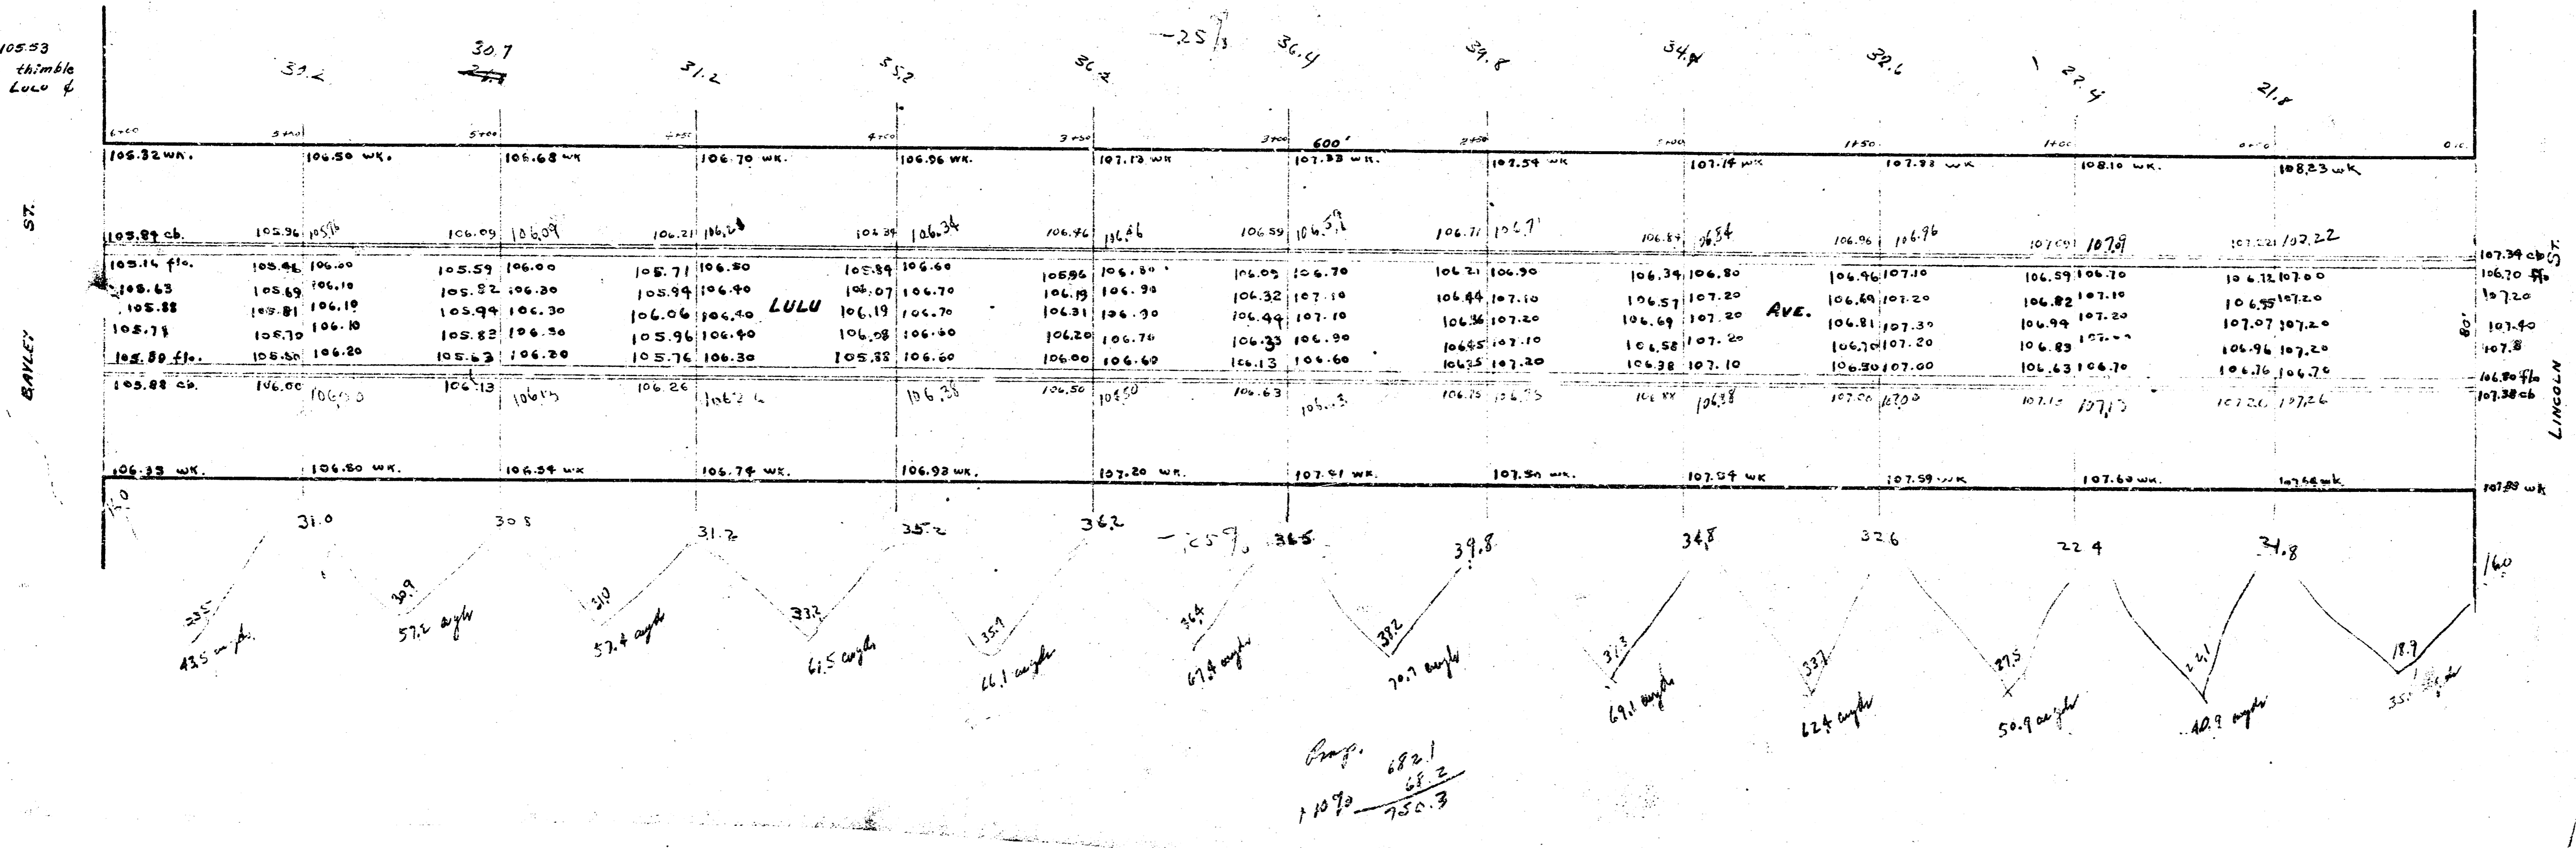 105.53
thimble
LULU ¢
30.7
31.2
35.2
36.2
-.25%
36.4
39.8
34.8
32.6
22.4
21.8
6+00 5+50 5+00 4+50 4+00 3+50 3+00 600' 2+50 2+00 1+50 1+00 0+50 0+0
105.32 WK. 106.50 WK. 106.68 WK 106.70 WK. 106.96 WK. 107.13 WK 107.33 WK. 107.54 WK 107.74 WK 107.93 WK 108.10 WK. 108.23 WK
105.84 cb. 105.96 105.96 106.09 106.09 106.21 106.21 106.34 106.34 106.46 106.46 106.59 106.59 106.71 106.71 106.84 106.84 106.96 106.96 107.09 107.09 107.22 107.22 107.34 cb
105.16 flo. 105.46 106.00 105.59 106.00 105.71 106.50 105.84 106.60 105.96 106.80 106.09 106.70 106.21 106.90 106.34 106.80 106.46 107.10 106.59 106.70 106.72 107.00 106.70 flo
105.63 105.69 106.10 105.82 106.30 105.94 106.40 106.07 106.70 106.19 106.90 106.32 107.10 106.44 107.10 106.57 107.20 106.69 107.20 106.82 107.10 106.95 107.20 107.20
105.88 105.81 106.10 105.94 106.30 106.06 106.40 LULU 106.19 106.70 106.31 106.90 106.44 107.10 106.56 107.20 106.69 107.20 AVE. 106.81 107.30 106.94 107.20 107.07 107.20 107.40
105.78 105.70 106.10 105.83 106.30 105.96 106.40 106.08 106.60 106.20 106.70 106.33 106.90 106.45 107.10 106.58 107.20 106.70 107.20 106.83 106.96 107.20
105.80 flo. 105.50 106.20 105.63 106.20 105.76 106.30 105.88 106.60 106.00 106.60 106.13 106.60 106.25 107.20 106.38 107.10 106.50 107.00 106.63 106.70 106.76 106.70 106.80 flo
105.88 cb. 106.00 106.00 106.13 106.13 106.26 106.26 106.38 106.50 106.50 106.63 106.63 106.75 106.75 106.88 106.88 107.00 107.00 107.13 107.13 107.26 107.26 107.38 cb
BAYLEY ST.
80'
LINCOLN ST.
106.35 WK. 106.50 WK. 106.54 WK 106.74 WK. 106.93 WK. 107.20 WK. 107.41 WK. 107.50 WK. 107.54 WK 107.59 WK 107.60 WK. 107.83 WK
31.0 30.8 31.2 35.2 36.2 -.25% 36.5 39.8 34.8 32.6 22.4 21.8 16.0
23.5 30.9 31.0 33.2 35.7 36.4 38.2 37.3 33.7 27.5 22.1 18.9
43.5 cuyds.
57.2 cuyds
57.4 cuyds
61.5 cuyds
66.1 cuyds
67.4 cuyds
70.7 cuyds
69.1 cuyds
62.4 cuyds
50.9 cuyds
40.9 cuyds
682.1
+10% 68.2
750.3